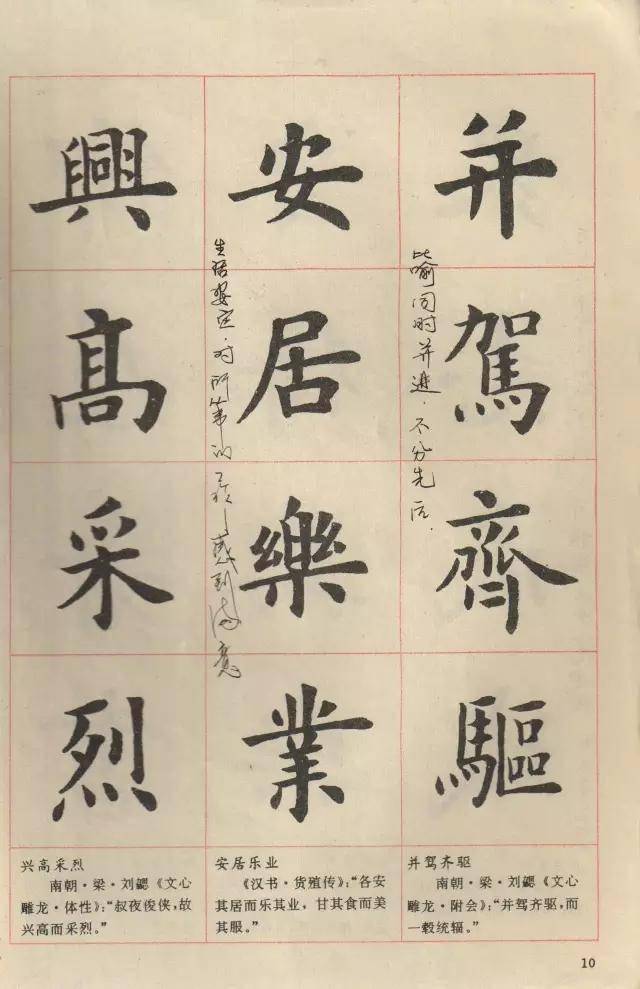 并駕齊驅
比喻同时并进.不分先后.
安居樂業
生活安定.对所的感到满意
興髙采烈
并驾齐驱
南朝·梁·刘勰《文心
雕龙·附会》:“并驾齐驱,而
一毂统辐。”
安居乐业
《汉书·货殖传》:“各安
其居而乐其业，甘其食而美
其服。”
兴高采烈
南朝·梁·刘勰《文心
雕龙·体性》:“叔夜俊侠,故
兴高而采烈。”
10